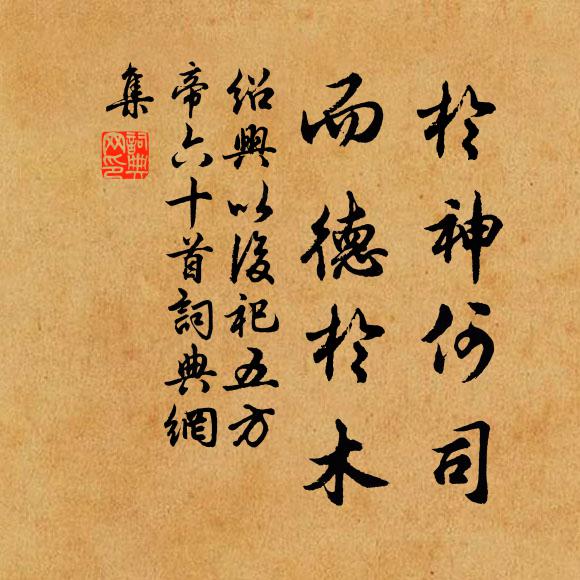 於神何司
而德於木
紹興以後祀五方
帝六十首詞典網
集
詞典網印